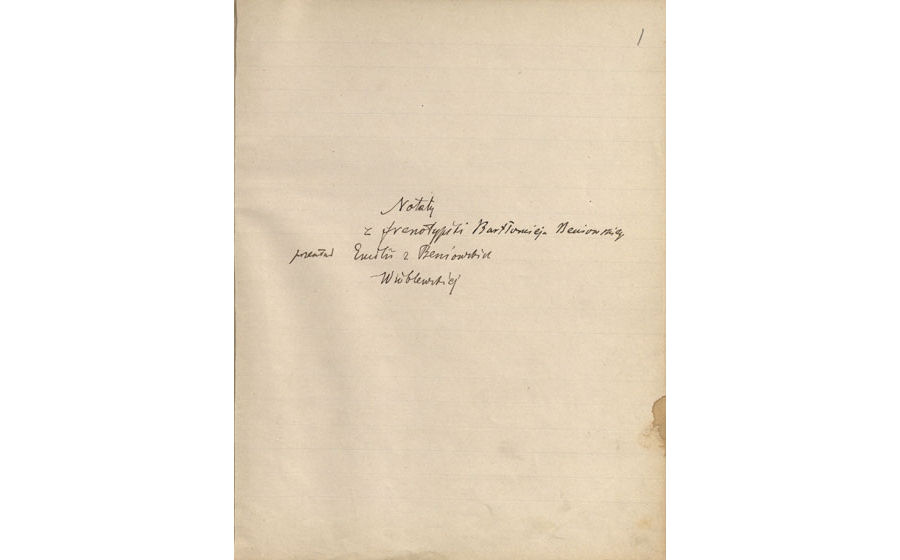 1
Notaty
z frenotypiki Bartłomieja Beniowskiego
przekład Emilii z Beniowskich
Wróblewskiej